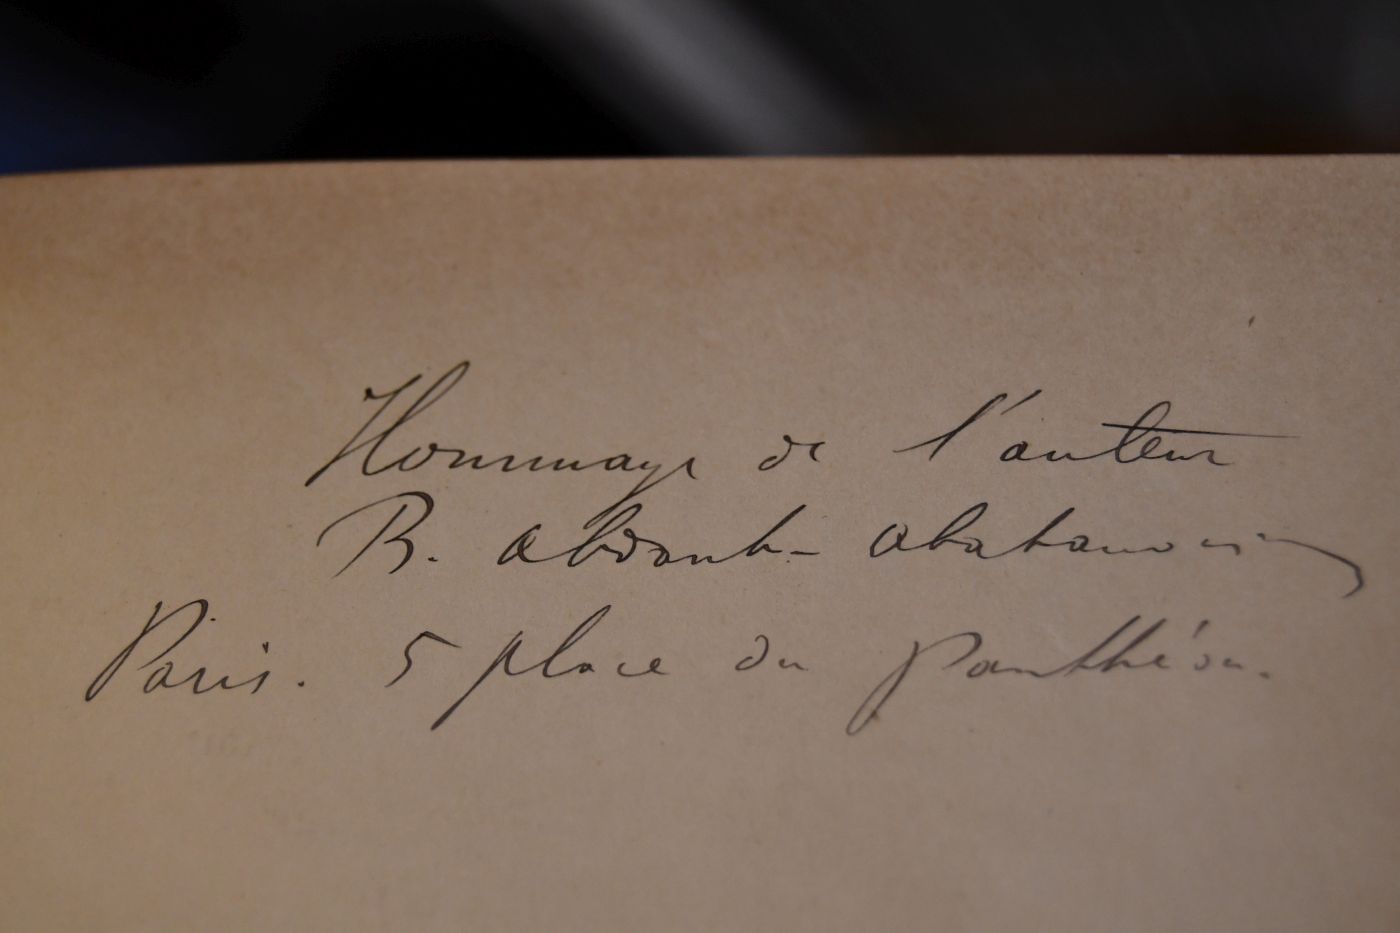 Hommage de l'auteur
B. Abdank-Abakanowicz
Paris. 5 place du Panthéon.